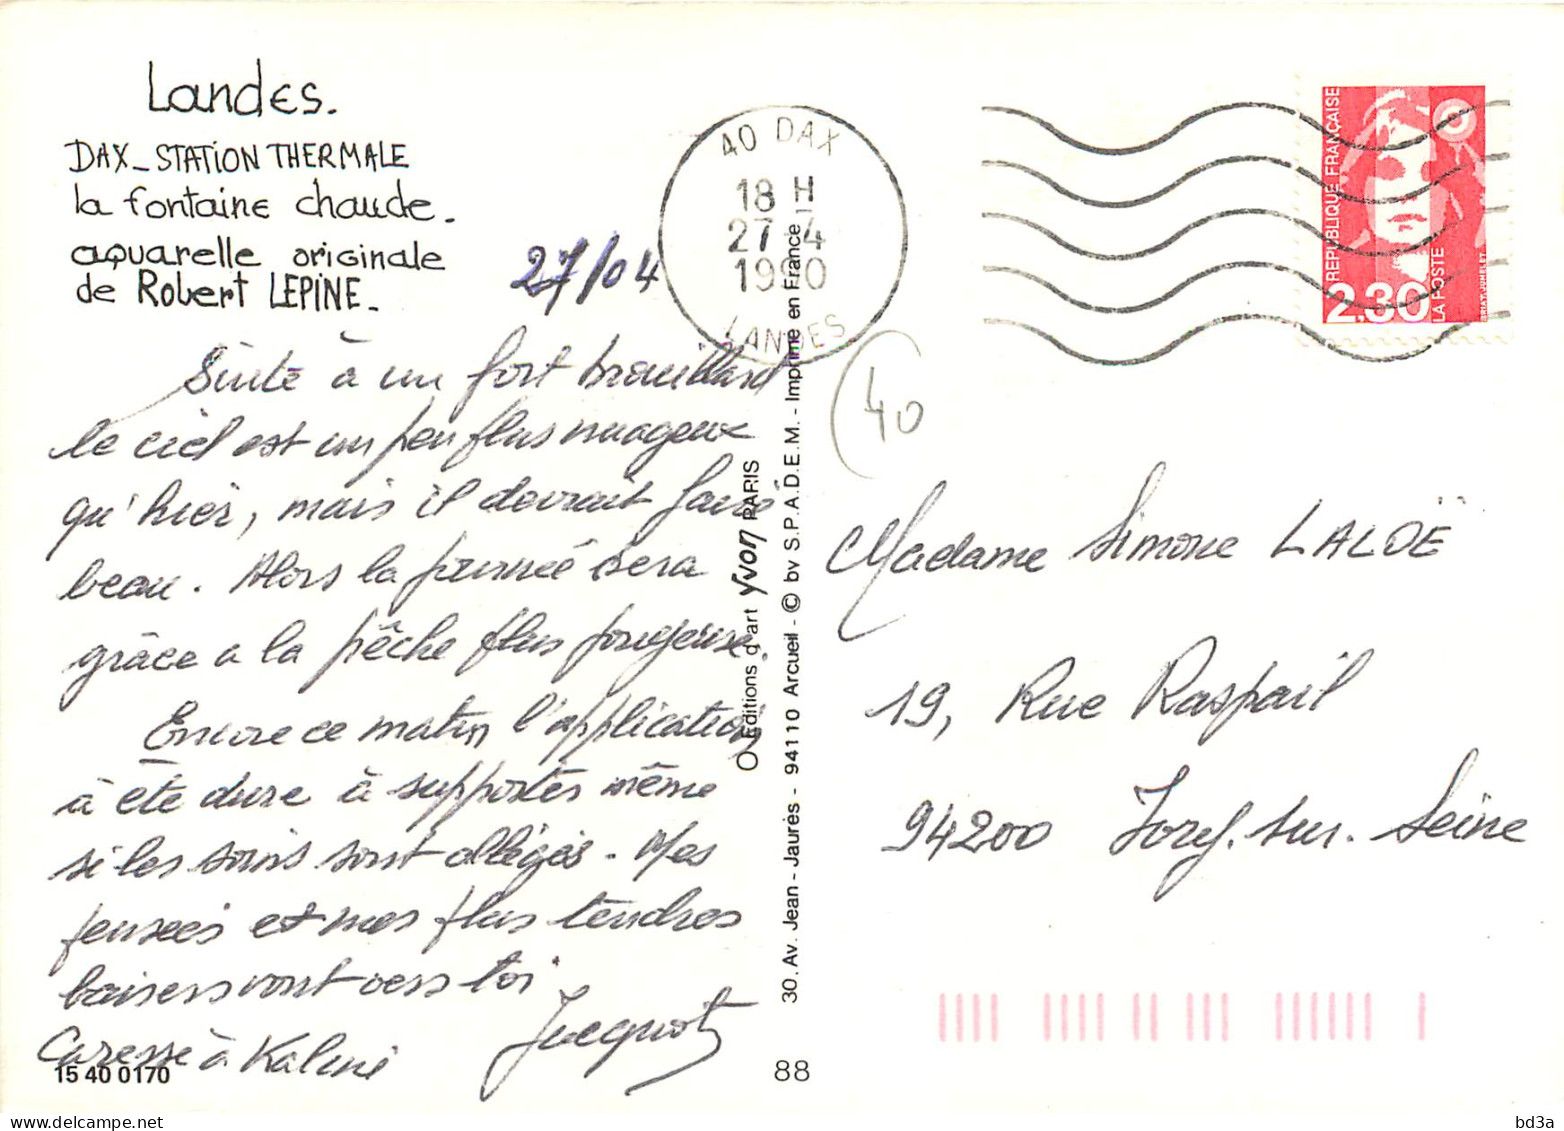 Landes.
DAX_STATION THERMALE
la fontaine chaude.
aquarelle originale
de Robert LEPINE_
27/04
40 DAX
18 H
27-4
1990
LANDES
REPUBLIQUE FRANÇAISE
2,30
LA POSTE
(40
Suite à un fort brouillard
le ciel est un peu plus nuageux
qu'hier, mais il devrait faire
beau. Alors la journée sera
grâce a la pêche plus joyeuse.
Encore ce matin l'application
à été dure à supporter même
si les soins sont allégés. Mes
pensées et mes plus tendres
baisers vont vers toi.
Jacquot
Caresse à
15 40 0170
Editions d'art yvon PARIS
30. Av. Jean - Jaurès - 94110 Arcueil - © by S.P.A.D.E.M. - Imprimé en France
88
Madame Simone LALOË
19, Rue Raspail
94200 Ivry. sur. Seine
bd3a